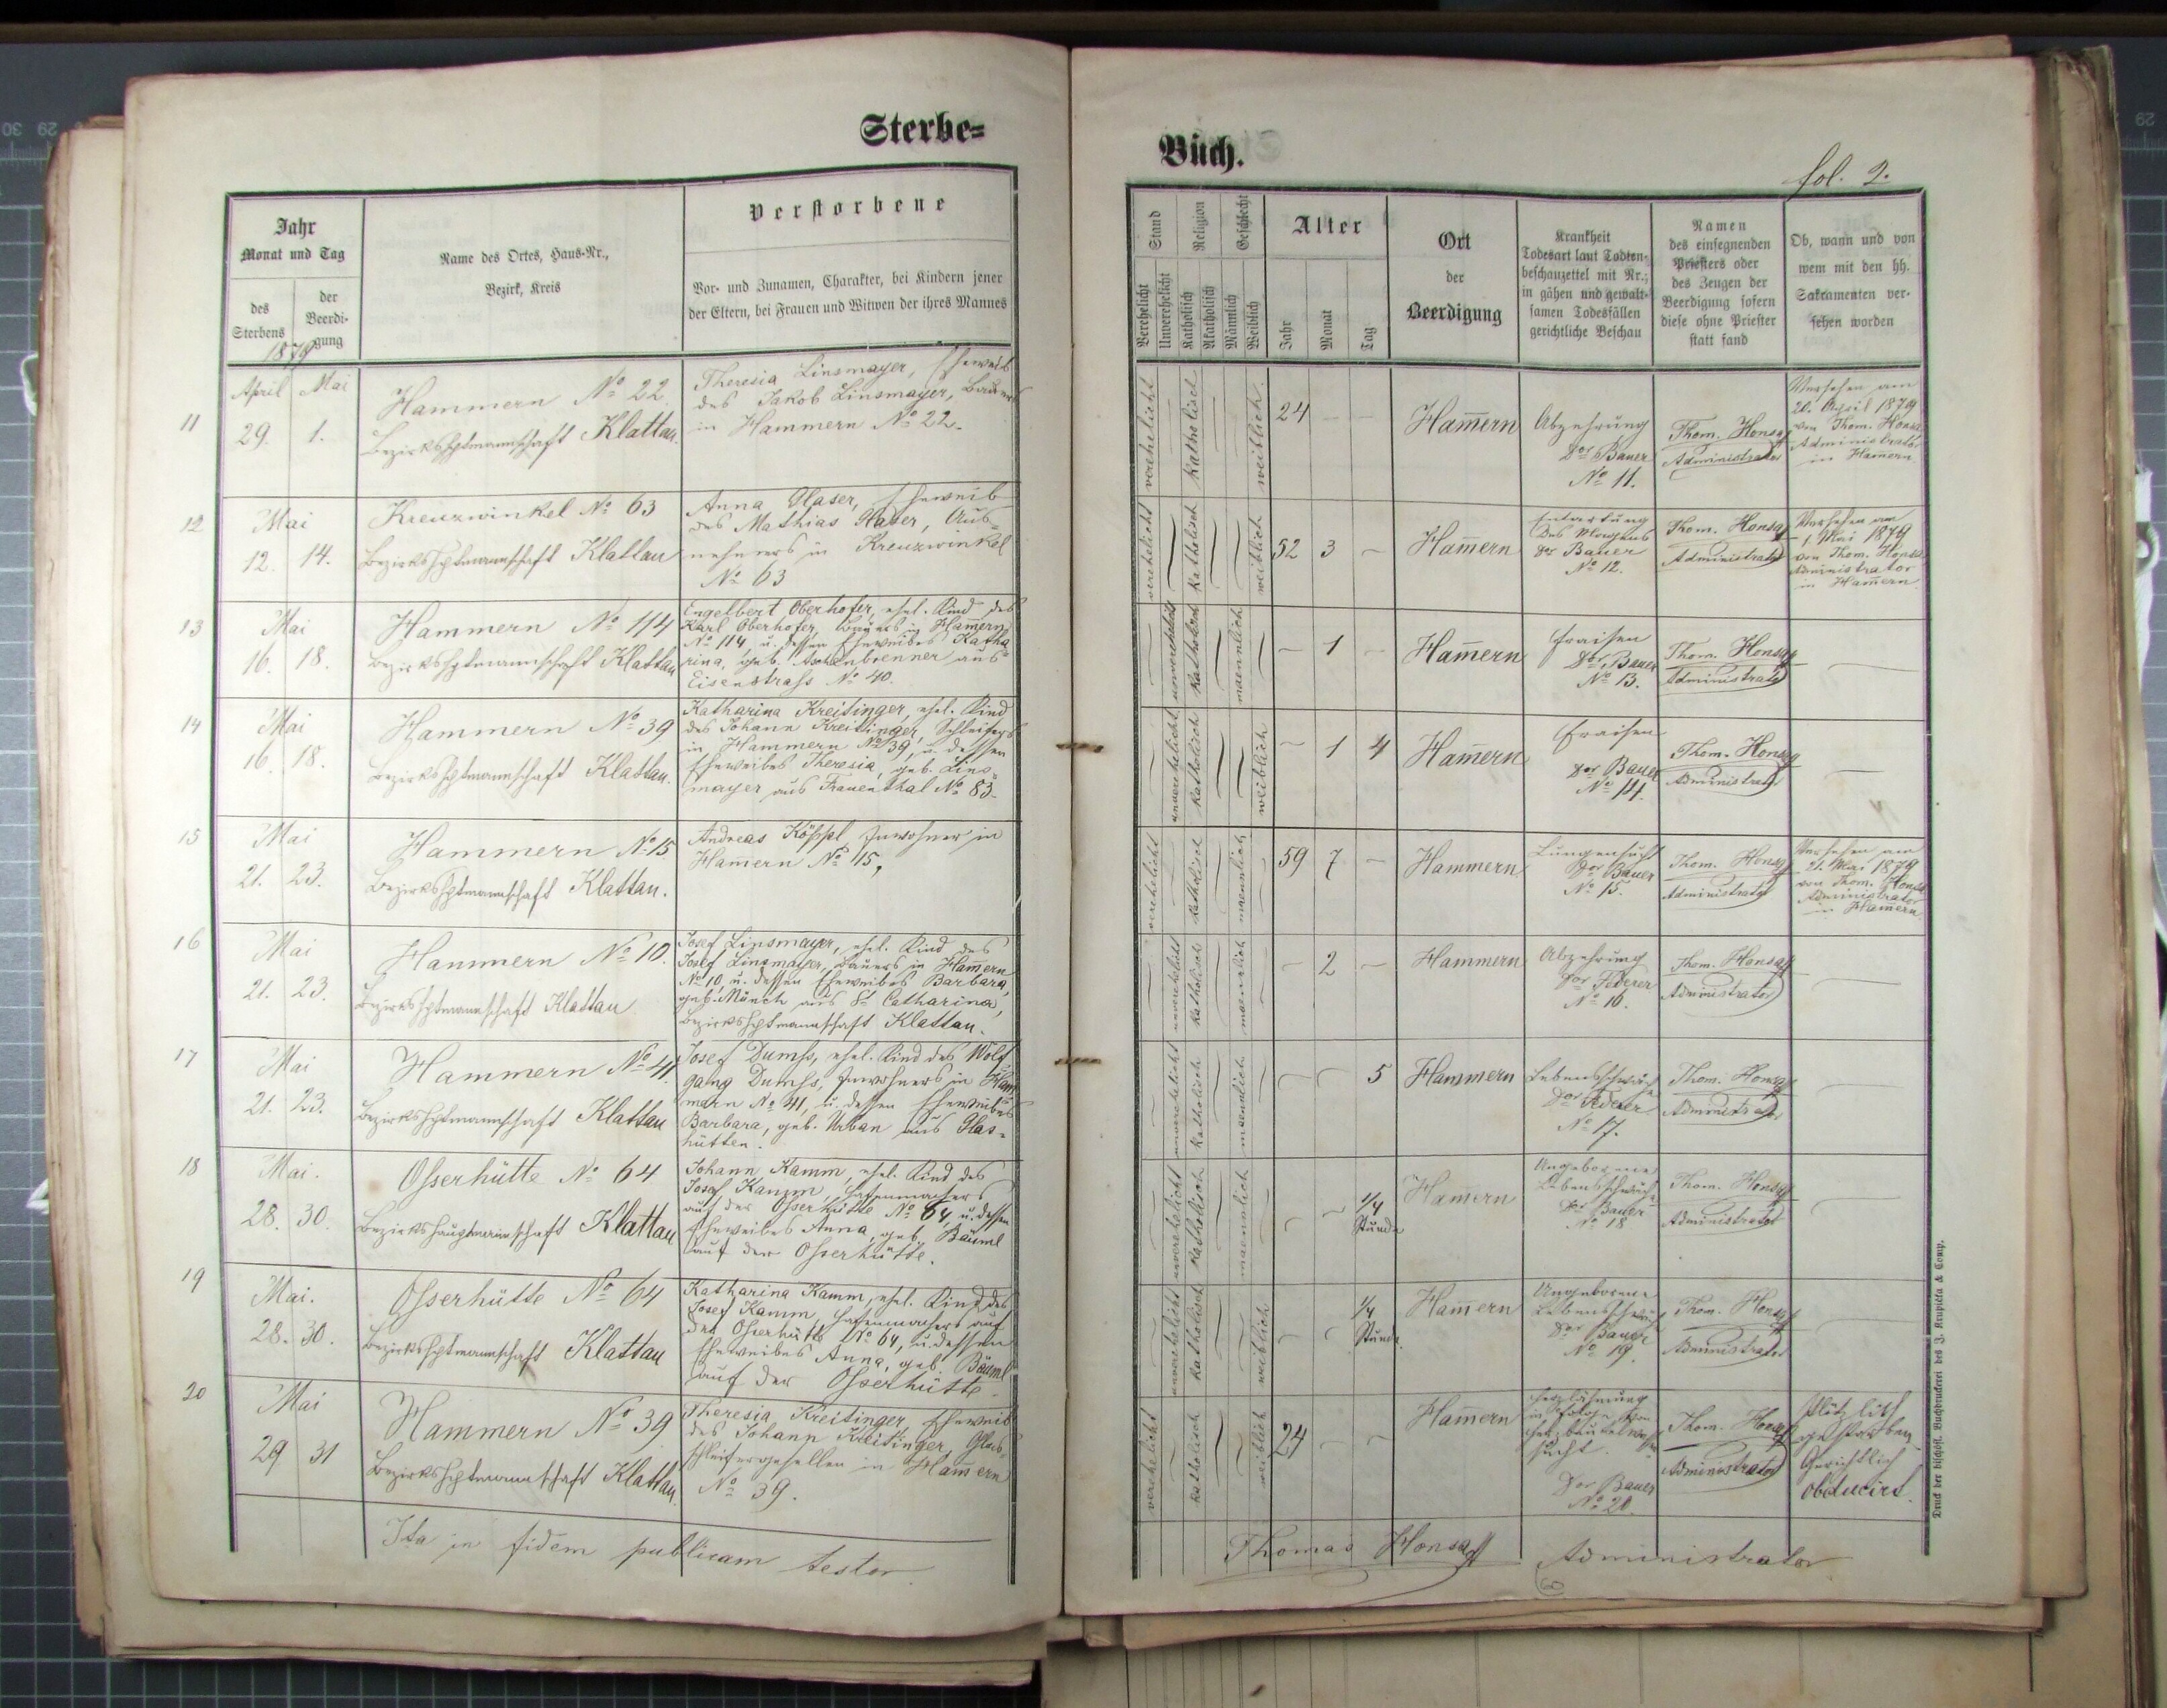 Sterbe=
Jahr
Monat und Tag
des
Sterbens
der
Beerdi-
gung
1879
Name des Ortes, Haus-Nr.,
Bezirk, Kreis
Verstorbene
Vor- und Zunamen, Charakter, bei Kindern jener
der Eltern, bei Frauen und Witwen der ihres Mannes
11
April Mai
29. 1.
Hammern No 22
Bezirkshptmannschaft Klattau.
Theresia Linsmayer, Eheweib
des Jakob Linsmayer, Bauers
in Hammern No 22.
12
Mai
12. 14.
Kreuzwinkel No 63
Bezirkshptmannschaft Klattau
Anna Glaser, Eheweib
des Mathias Glaser, Aus-
nehmers in Kreuzwinkel
No 63
13
Mai
16. 18.
Hammern No 114
Bezirkshptmannschaft Klattau
Engelbert Oberhofer, ehel. Kind des
Karl Oberhofer, Bauers in Ham̅ern
No 114, u. dessen Eheweibes Katha-
rina, geb. Aschenbrenner aus
Eisenstrass No 40.
14
Mai
16. 18.
Hammern No 39
Bezirkshptmannschaft Klattau.
Katharina Kreitinger, ehel. Kind
des Johann Kreitinger, Schleifers
in Hammern No 39, u. dessen
Eheweibes Theresia, geb. Lins-
mayer aus Frauenthal No 83.
15
Mai
21. 23.
Hammern No 15
Bezirkshptmannschaft Klattau.
Andreas Köppl, Inwohner in
Ham̅ern No 115,
16
Mai
21. 23.
Hammern No 10.
Bezirkshptmannschaft Klattau
Josef Linsmayer, ehel. Kind des
Josef Linsmayer, Bauers in Ham̅ern
No 10, u. dessen Eheweibes Barbara,
geb. Münch aus St. Catharina,
Bezirkshptmannschaft Klattau.
17
Mai
21. 23.
Hammern No 41.
Bezirkshptmannschaft Klattau
Josef Dumhs, ehel. Kind des Wolf-
gang Dumhs, Inwohners in Ham-
mern No 41, u. dessen Eheweibes
Barbara, geb. Urban aus Glas-
hütten.
18
Mai.
28. 30.
Osserhütte No 64
Bezirkshauptmannschaft Klattau
Johann Kamm, ehel. Kind des
Josef Kamm, Hafenmachers
auf der Osserhütte No 64, u. dessen
Eheweibes Anna, geb. Bäuml
auf der Osserhütte.
19
Mai.
28. 30.
Osserhütte No 64
Bezirkshptmannschaft Klattau
Katharina Kamm, ehel. Kind des
Josef Kamm, Hafenmachers auf
der Osserhütte No 64, u. dessen
Eheweibes Anna, geb. Bäuml
auf der Osserhütte
20
Mai
29 31
Hammern No 39
Bezirkshptmannschaft Klattau.
Theresia Kreitinger, Eheweib
des Johann Kreitinger, Glas-
schleifergesellen in Ham̅ern
No 39.
Ita in fidem publicam testor.
Buch.
fol. 2.
Stand
Verehelicht
Unverehelicht
Religion
Katholisch
Akatholisch
Geschlecht
Männlich
Weiblich
Alter
Jahr
Monat
Tag
Ort
der
Beerdigung
Krankheit
Todesart laut Todten-
beschauzettel mit Nr.;
in gähen und gewalt-
samen Todesfällen
gerichtliche Beschau
Namen
des einsegnenden
Priesters oder
des Zeugen der
Beerdigung sofern
diese ohne Priester
statt fand
Ob, wann und von
wem mit den hh.
Sakramenten ver-
sehen worden
verehelicht katholisch weiblich. 24 — — Ham̅ern
Abzehrung
Dor Bauer
No 11.
Thom. Honsa
Administrator
Versehen am
20. April 1879
von Thom. Honsa
Administrator
in Ham̅ern
verehelicht katholisch weiblich 52 3 — Ham̅ern
Entartung
des Magens
Dor Bauer
No 12.
Thom. Honsa
Administrator
Versehen am
1. Mai 1879
von Thom. Honsa
Administrator
in Ham̅ern
unverehelicht katholisch maennlich — 1 — Ham̅ern
Fraisen
Dor Bauer
No 13.
Thom. Honsa
Administrator
unverehelicht katholisch weiblich — 1 4 Ham̅ern
Fraisen
Dor Bauer
No 14.
Thom. Honsa
Administrator
verehelicht katholisch maennlich 59 7 — Hammern
Lungensucht
Dor Bauer
No 15.
Thom. Honsa
Administrator
Versehen am
21. Mai 1879
von Thom. Honsa
Administrator
in Ham̅ern
unverehelicht katholisch maennlich — 2 — Hammern
Abzehrung
Dor Federer
No 16.
Thom. Honsa
Administrator
unverehelicht katholisch maennlich — — 5 Hammern
Lebensschwäche
Dor Federer
No 17.
Thom. Honsa
Administrator
unverehelicht katholisch maennlich — — 1/4 Stunde Ham̅ern
Angeborene
Lebensschwäche
Dor Bauer
No 18
Thom. Honsa
Administrator
unverehelicht katholisch weiblich — — 1/4 Stunde Ham̅ern
Angeborene
Lebensschwäche
Dor Bauer
No 19.
Thom. Honsa
Administrator
verehelicht katholisch weiblich 24 — — Ham̅ern
Herzlähmung
in Folge von
Herzbeutelwasser-
sucht.
Dor Bauer
No 20.
Thom. Honsa
Administrator
Plötzlich
gestorben
Gerichtlich
obducirt.
Thomas Honsa Administrator
Druck der bischöfl. Buchdruckerei des J. Krupicka & Comp.